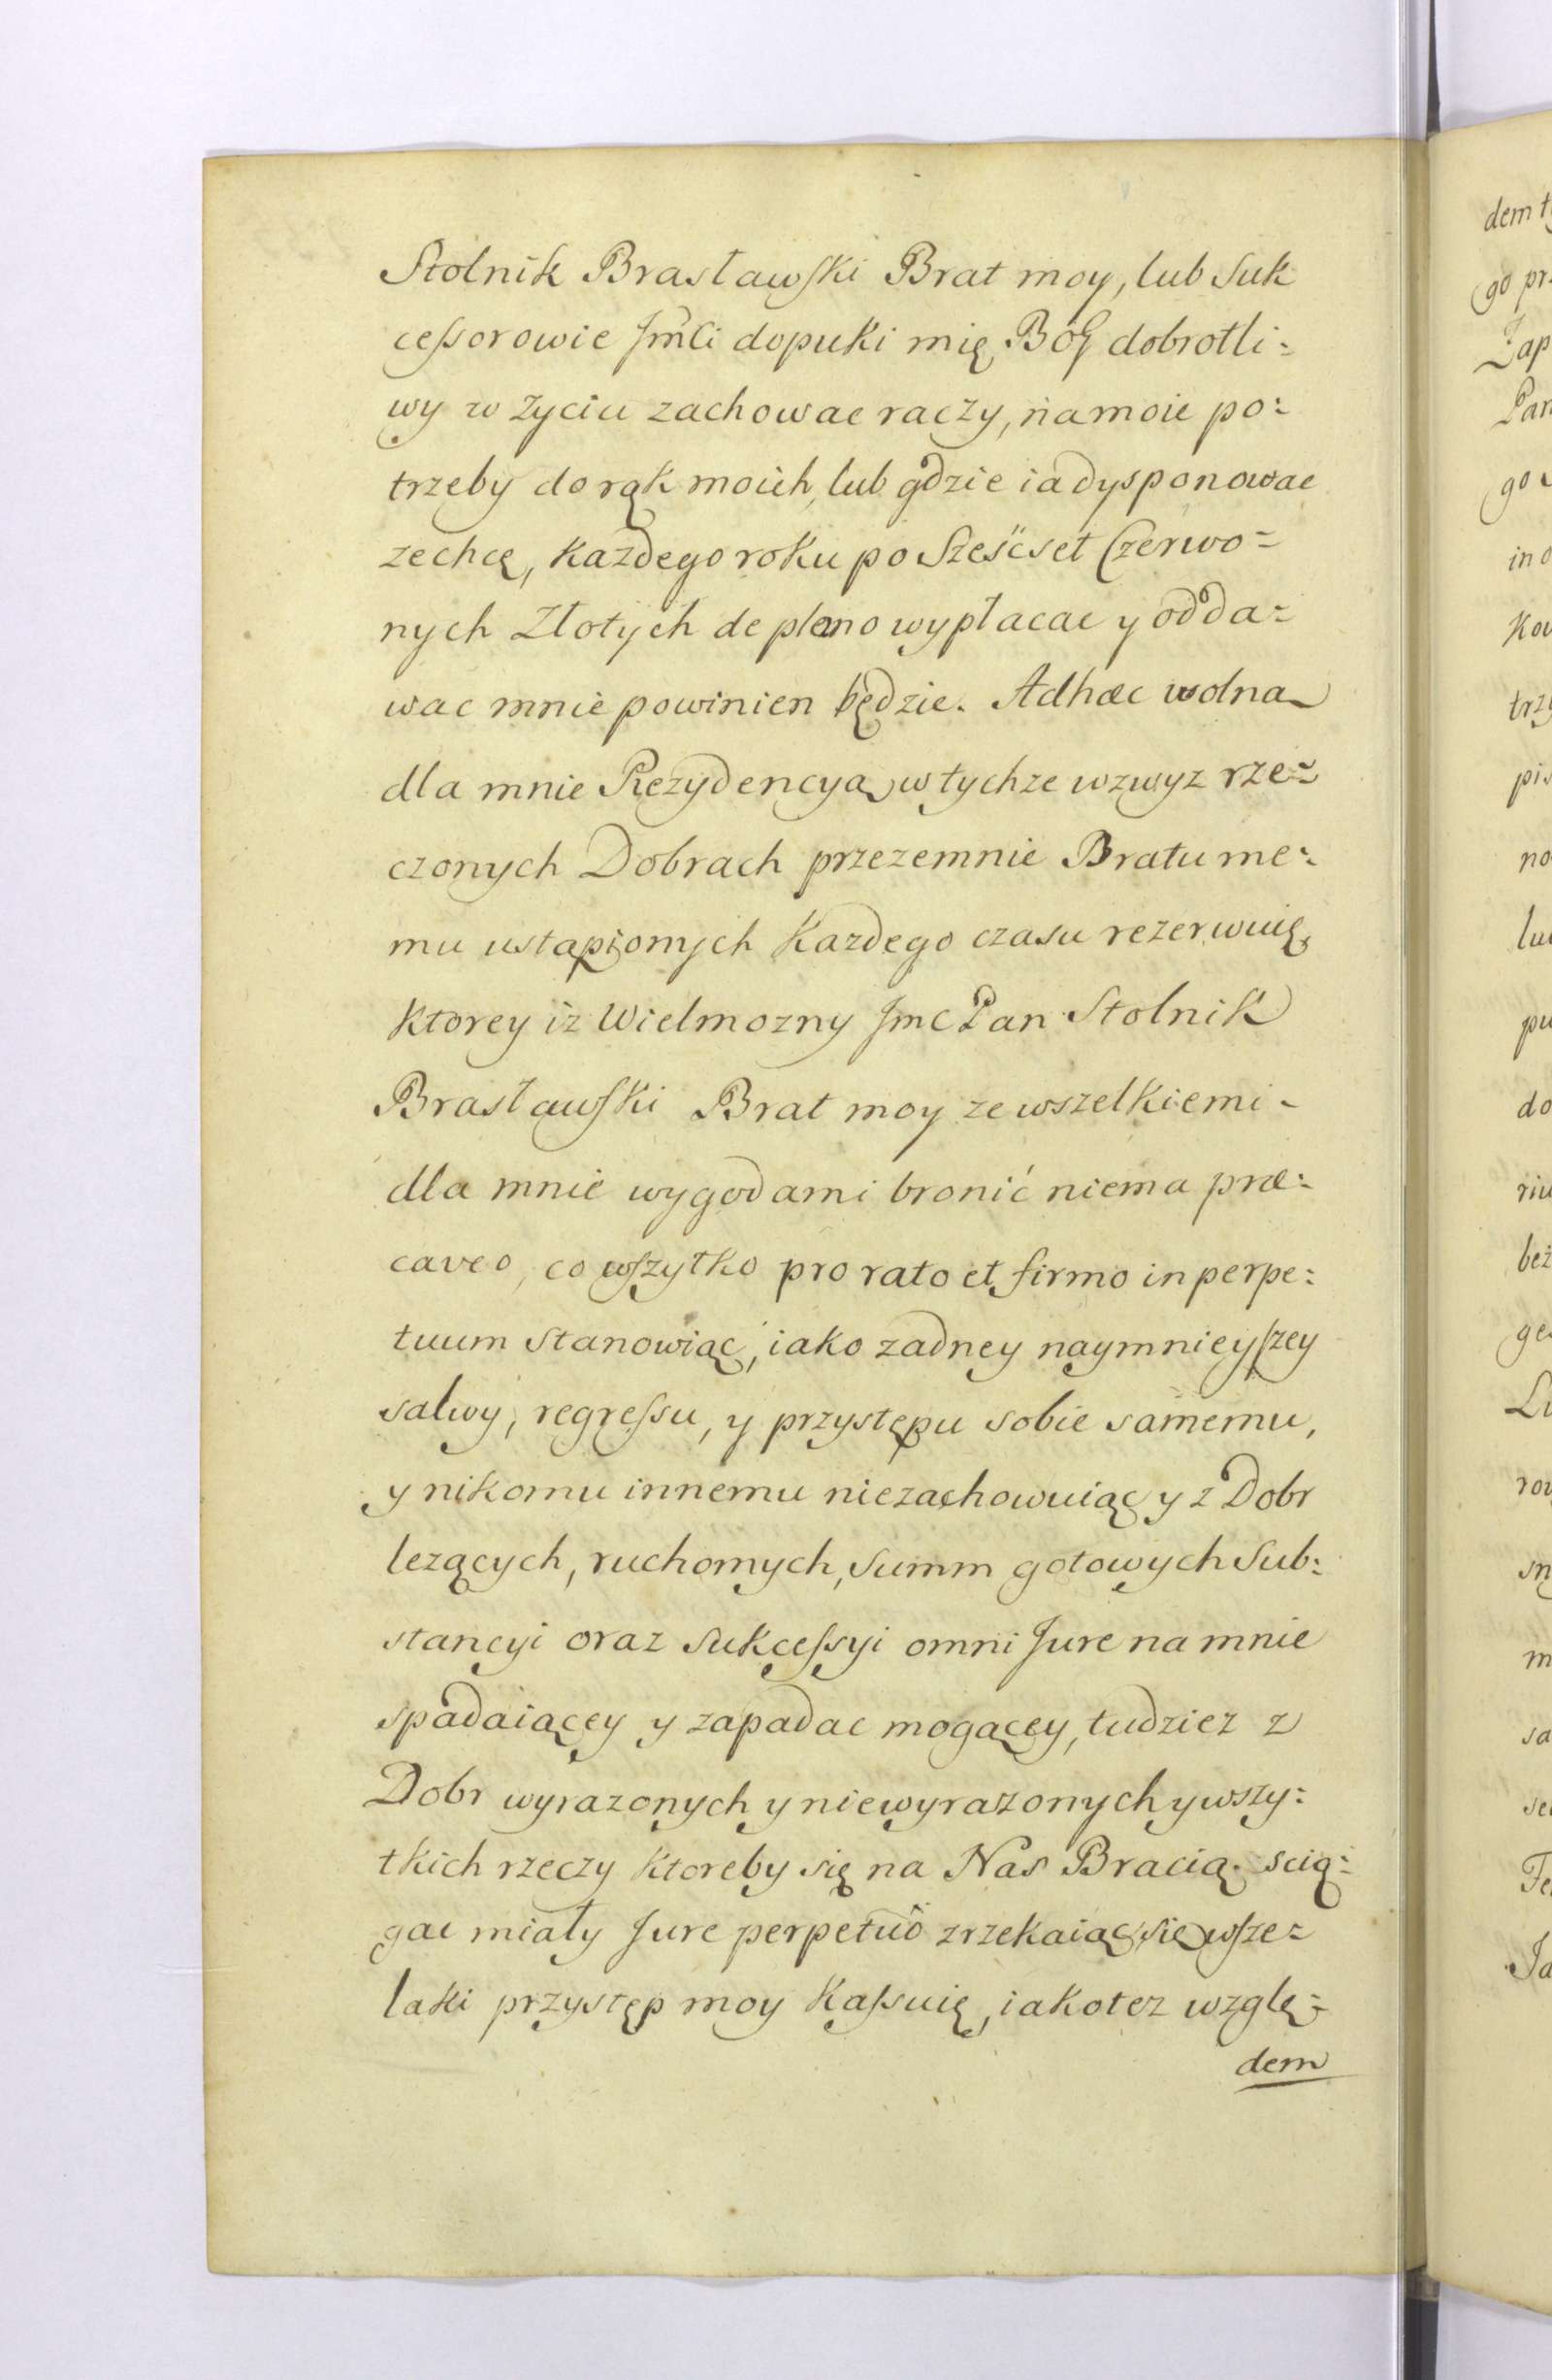 Stolnik Brasławski Brat moy, lub Suk
cessorowie Jm̃ci dopuki mię Bóg dobrotli=
wy w zyciu zachowac raczy, na moie po=
trzeby do rąk moich, lub gdzie ia dysponowac
zechcę, kazdego roku po Sześcset Czerwo=
nych Złotych de plano wypłacac y odda=
wac mnie powinien będzie. Adhæc wolna
dla mnie Rezydencya w tychze wzwyz rze=
czonych Dobrach przezemnie Bratu me=
mu ustąpionych kazdego czasu rezerwuię,
ktorey iz Wielmozny Jmc Pan Stolnik
Brasławski Brat moy ze wszelkiemi -
dla mnie wygodami bronić niema præ=
caveo, co wszytko pro rato et firmo in perpe=
tuum stanowiąc, iako zadney naymnieyszey
salwy, regressu, y przystępu sobie samemu,
y nikomu innemu niezachowuiąc y z Dobr
lezących, ruchomych, Summ gotowych Sub=
stancyi oraz Sukcessyi omni Jure na mnie
spadaiącey y zapadac mogącey, tudziez z
Dobr wyrazonych y niewyrazonych y wszy=
tkich rzeczy ktoreby się na Nas Bracią scią=
gac miały Jure perpetuô zrzekaiąc się wsze=
laki przystęp moy kassuię, iakotez wzglę=
dem